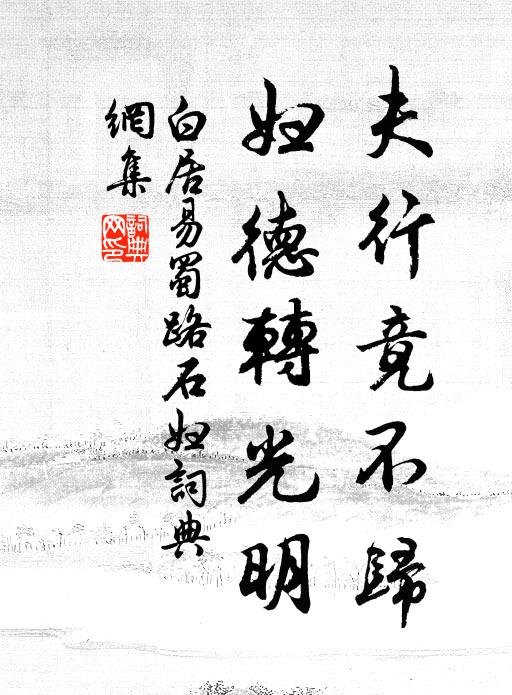 夫行竟不歸
婦德轉光明
白居易蜀路石婦詞典
網集
詞典網印